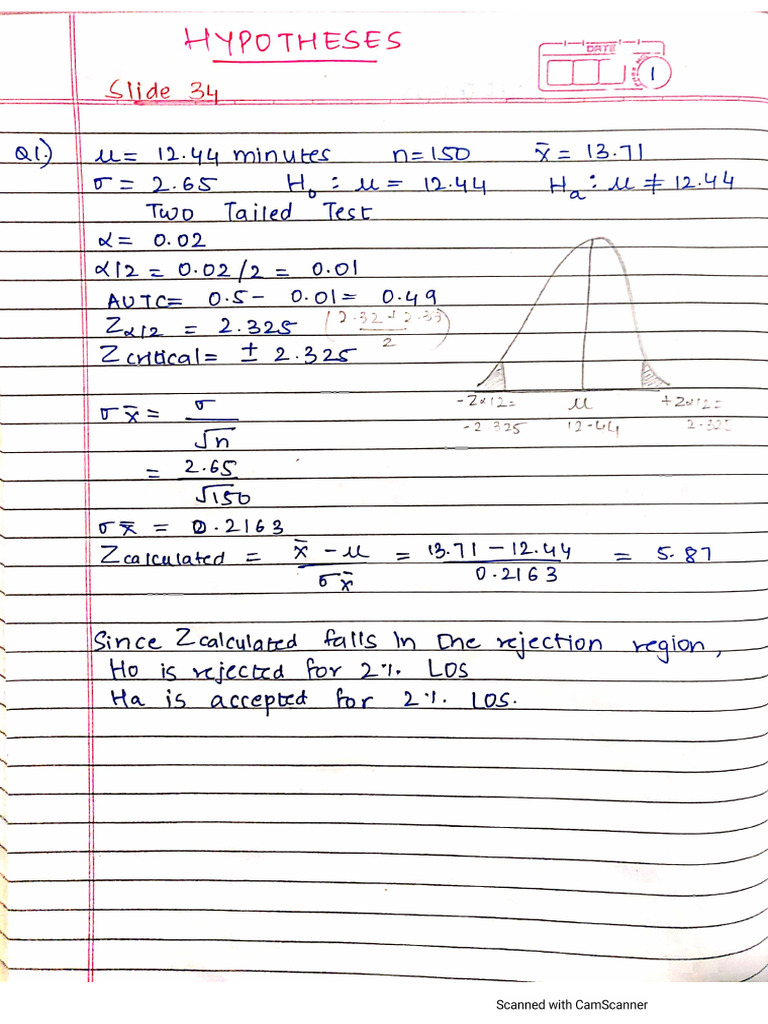 HYPOTHESES
DATE
1
Slide 34
Q1.) μ = 12.44 minutes n=150 x̄ = 13.71
σ = 2.65 H₀ : μ = 12.44 Hₐ : μ ≠ 12.44
Two Tailed Test
α = 0.02
α/2 = 0.02/2 = 0.01
AUTC= 0.5 - 0.01 = 0.49
Zα/2 = 2.325 (2.32+2.33)/2
Z critical = ± 2.325
-Zα/2= μ +Zα/2=
-2.325 12.44 2.325
σx̄ = σ/√n
= 2.65/√150
σx̄ = 0.2163
Z calculated = (x̄ - μ)/σx̄ = (13.71 - 12.44)/0.2163 = 5.87
Since Z calculated falls in the rejection region,
Ho is rejected for 2%. LOS
Ha is accepted for 2%. LOS.
Scanned with CamScanner